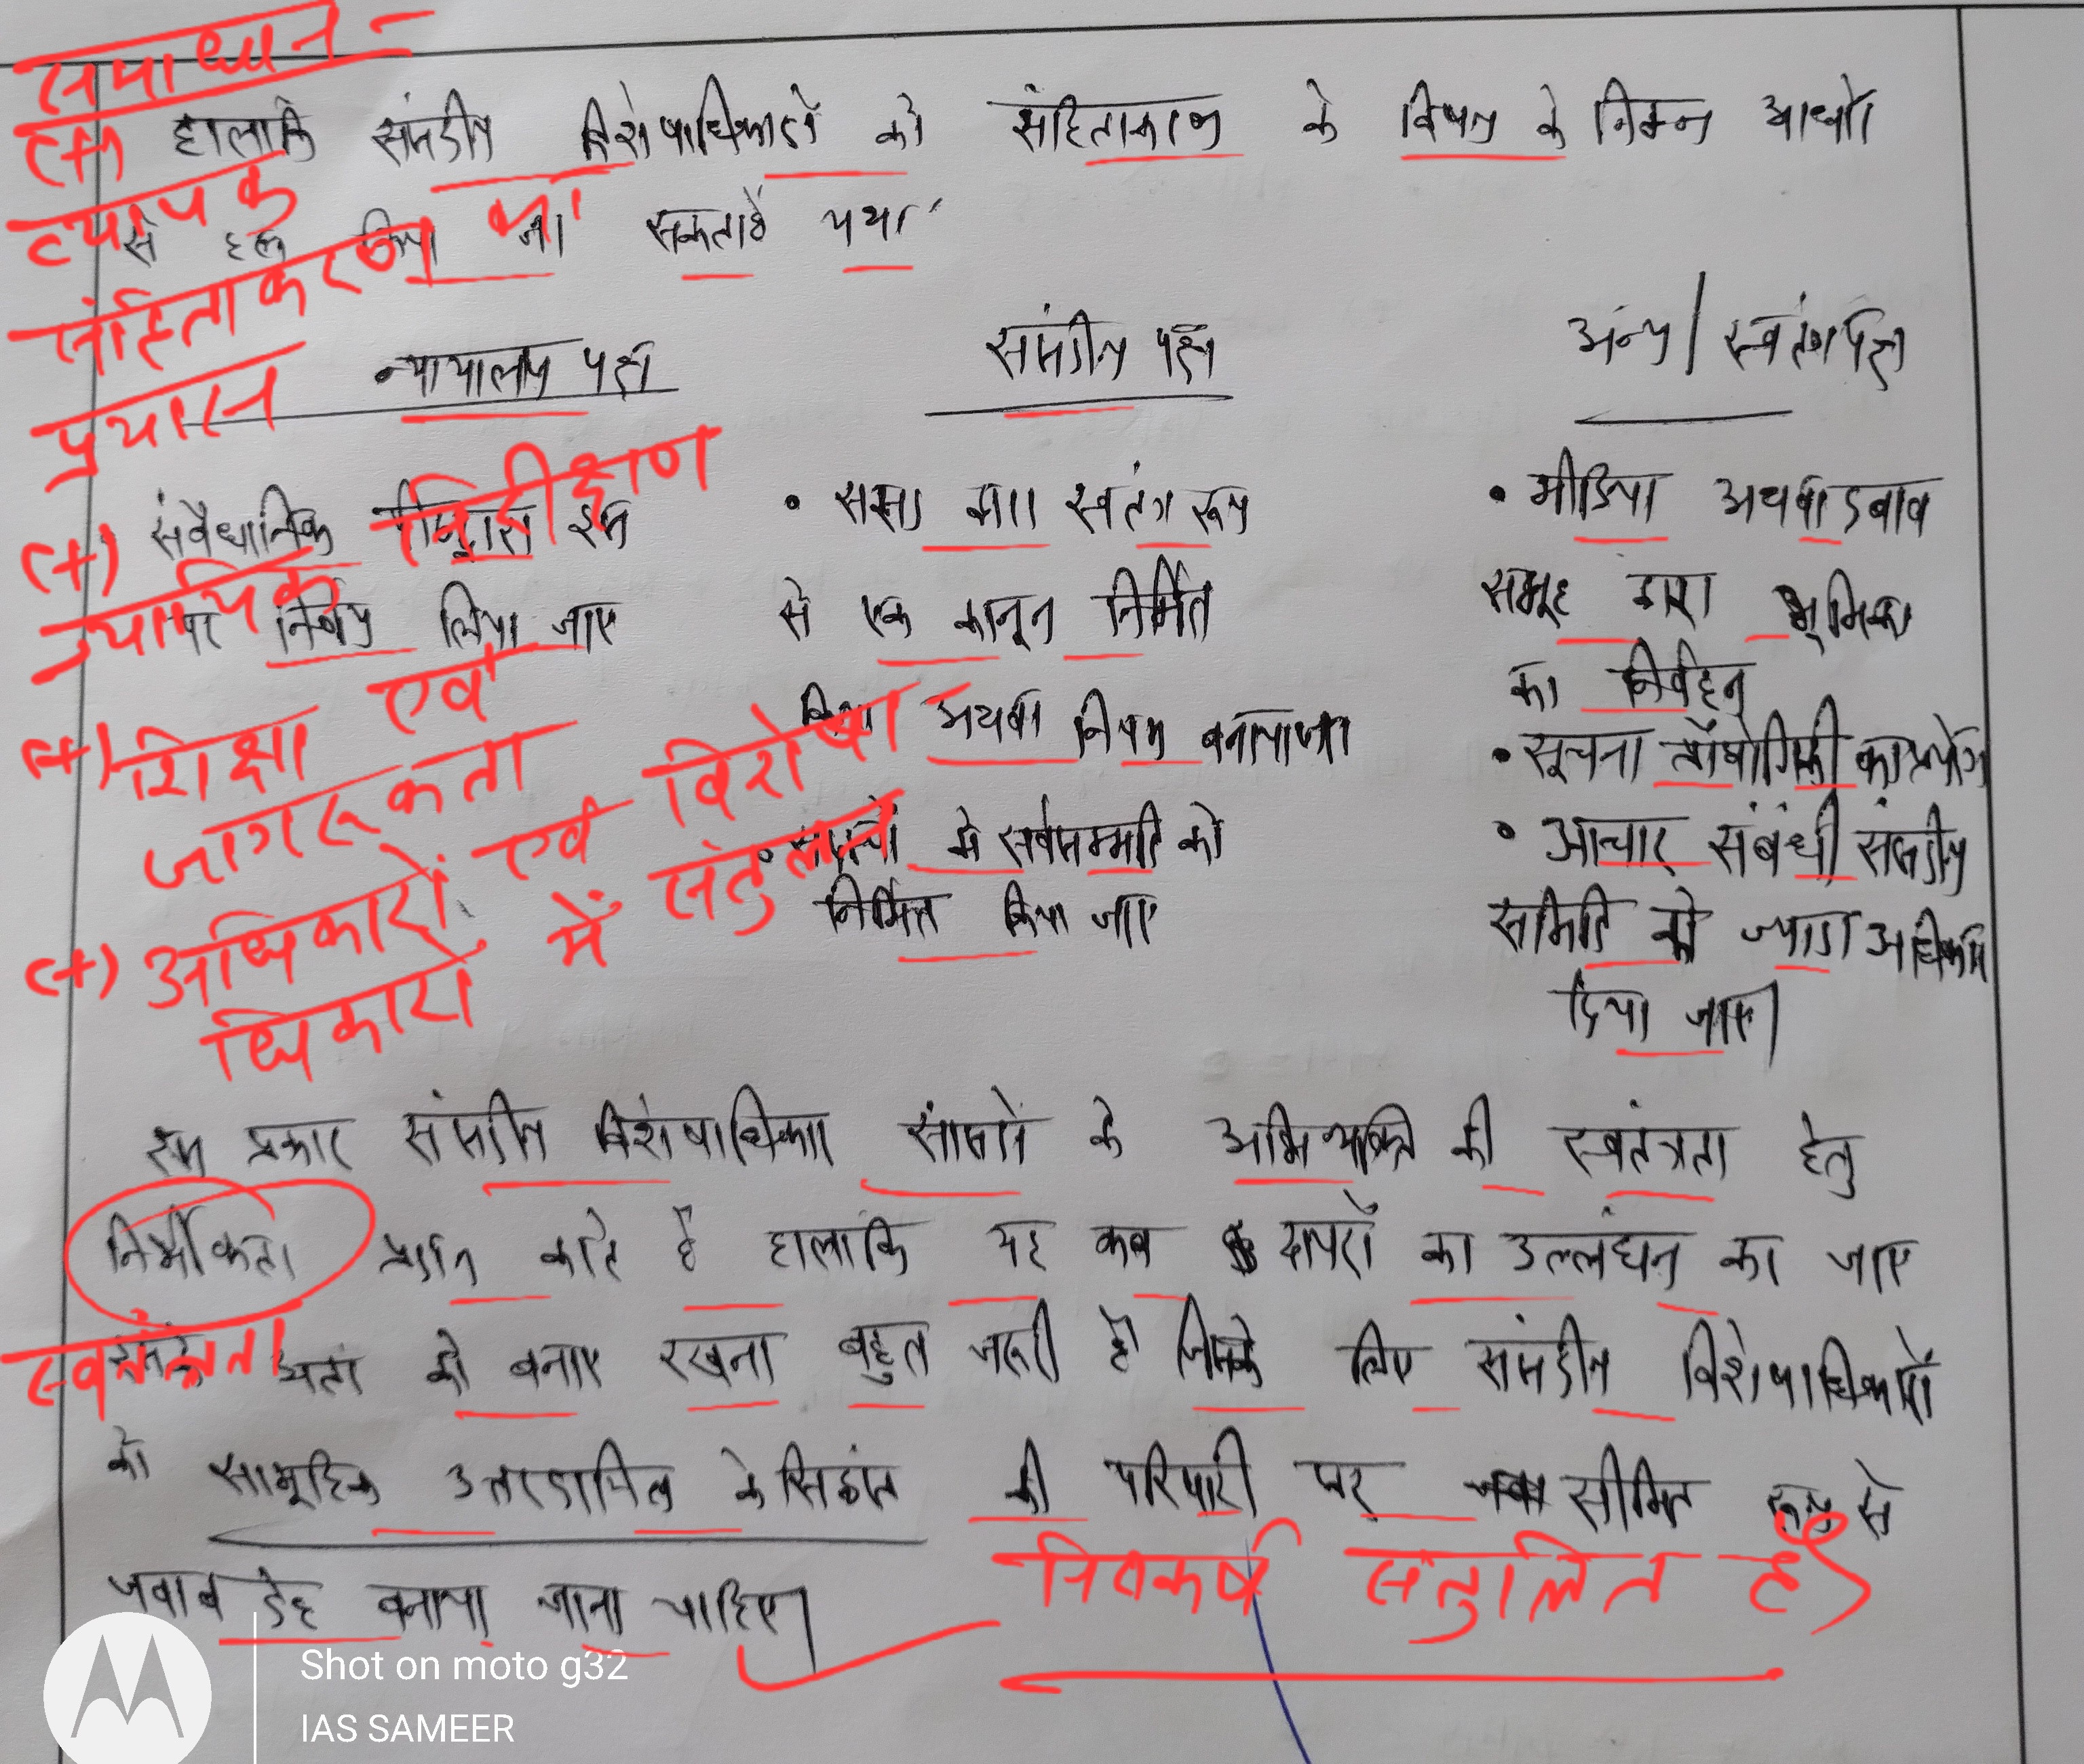 समाधान -
हालाकि संसदीय विशेषाधिकारों को संहिताकरण के विषय के निम्न आधारों
से हल किया जा सकता है यथा
(+) व्यापक
संहिताकरण का
प्रयास
न्यायालय पक्ष
संसदीय पक्ष
अन्य / स्वतंत्र पक्ष
(+) न्यायिक निरीक्षण
संवैधानिक इस
पर निर्णय लिया जाए
• सभा द्वारा स्वतंत्र रूप
से एक कानून निर्मित
किया अथवा नियम बनाया जाए
• सदस्यों में सर्वसम्मति को
निर्मित किया जाए
• मीडिया अथवा दबाव
समूह द्वारा भूमिका
का निर्वहन
• सूचना प्रौद्योगिकी का प्रयोग
• आचार संबंधी संसदीय
समिति को ज्यादा अधिकार
दिया जाए।
(+) शिक्षा एवं
जागरूकता
(+) अधिकारों एवं विशेषा
धिकारों में संतुलन
इस प्रकार संसदीय विशेषाधिकार सांसदों के अभिव्यक्ति की स्वतंत्रता हेतु
निर्भीकता प्रदान करते है हालाकि यह कब दायरों का उल्लंघन कर जाए
स्वतंत्रता
को बनाए रखना बहुत जरूरी है। जिसके लिए संसदीय विशेषाधिकारों
को सामूहिक उत्तरदायित्व के सिद्धांत की परिपाटी पर सीमित रूप से
जवाब देह बनाया जाना चाहिए।
निष्कर्ष संतुलित है।
Shot on moto g32
IAS SAMEER